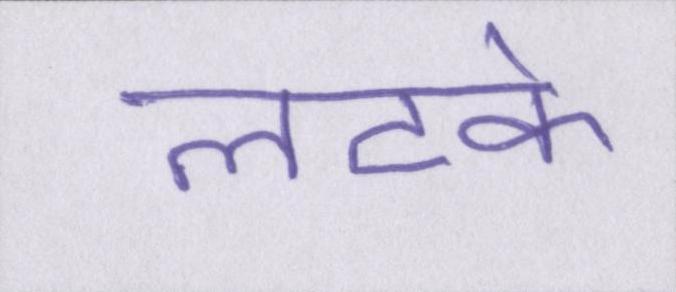 लटके